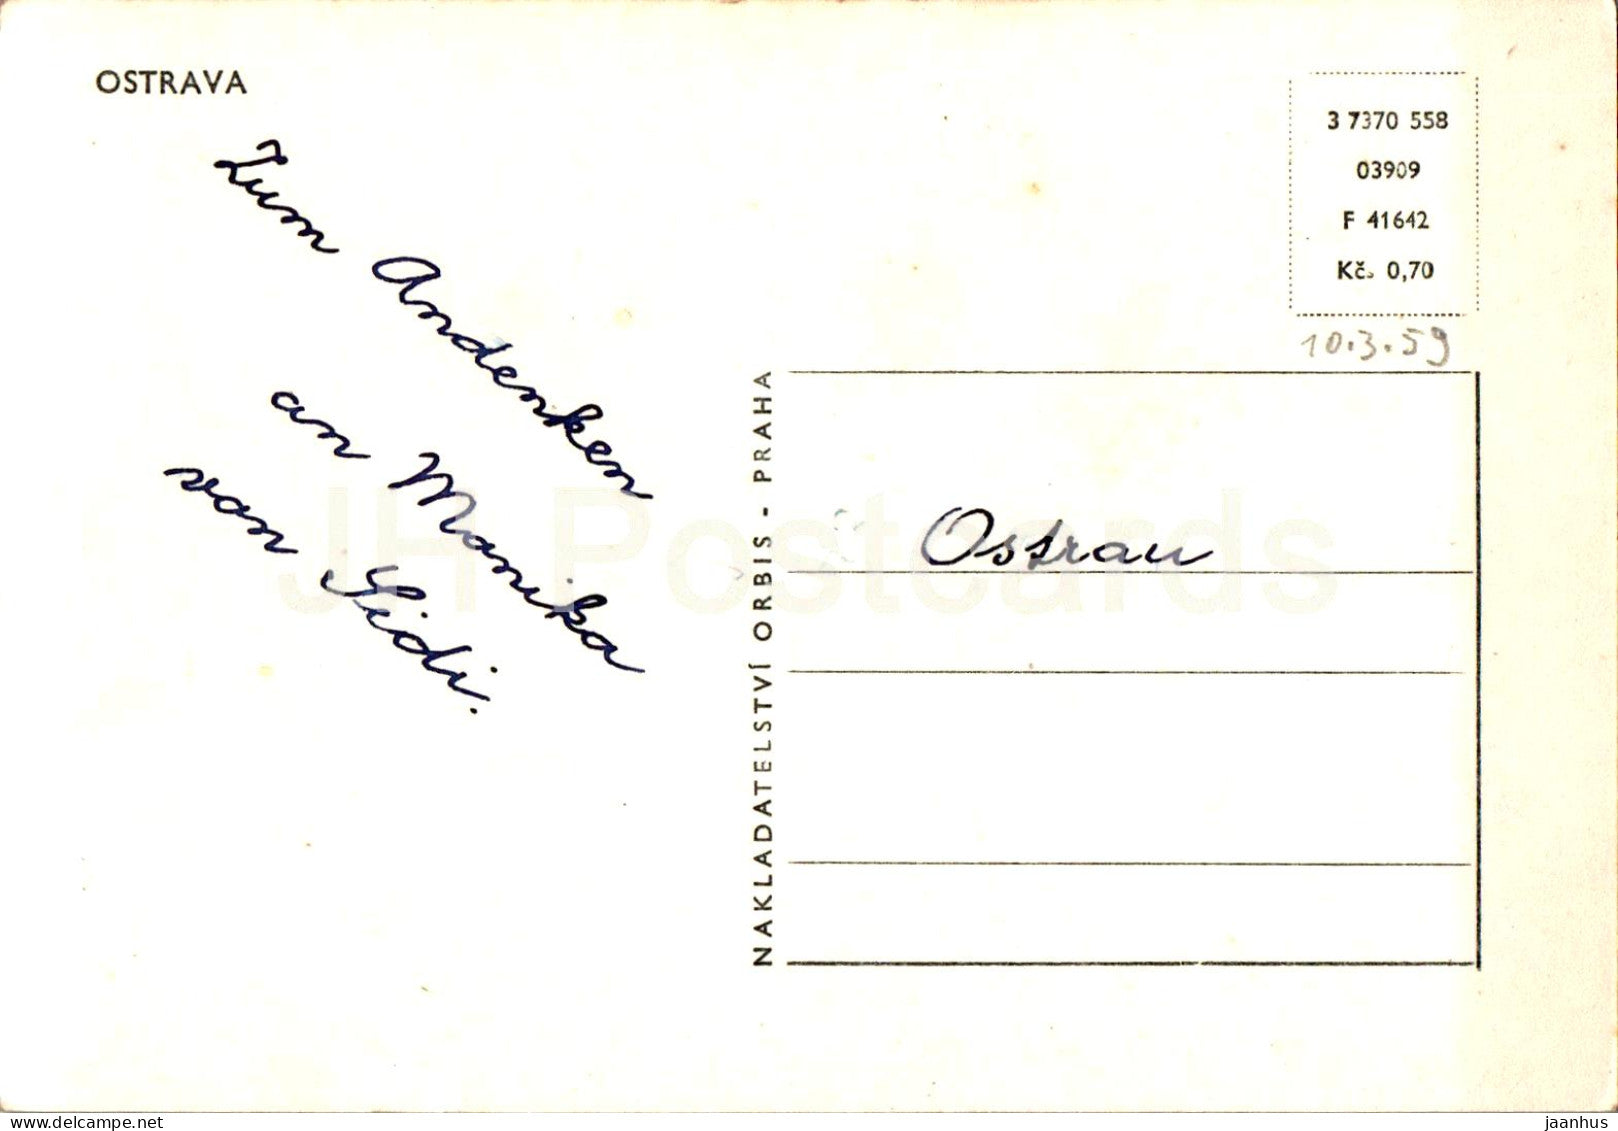 OSTRAVA
Zum Andenken
an Manika
von Sidi.
3 7370 558
03909
F 41642
Kčs 0,70
10.3.59
NAKLADATELSTVÍ ORBIS - PRAHA
Ostrau
JH Postcards
delcampe.net
jaanhus